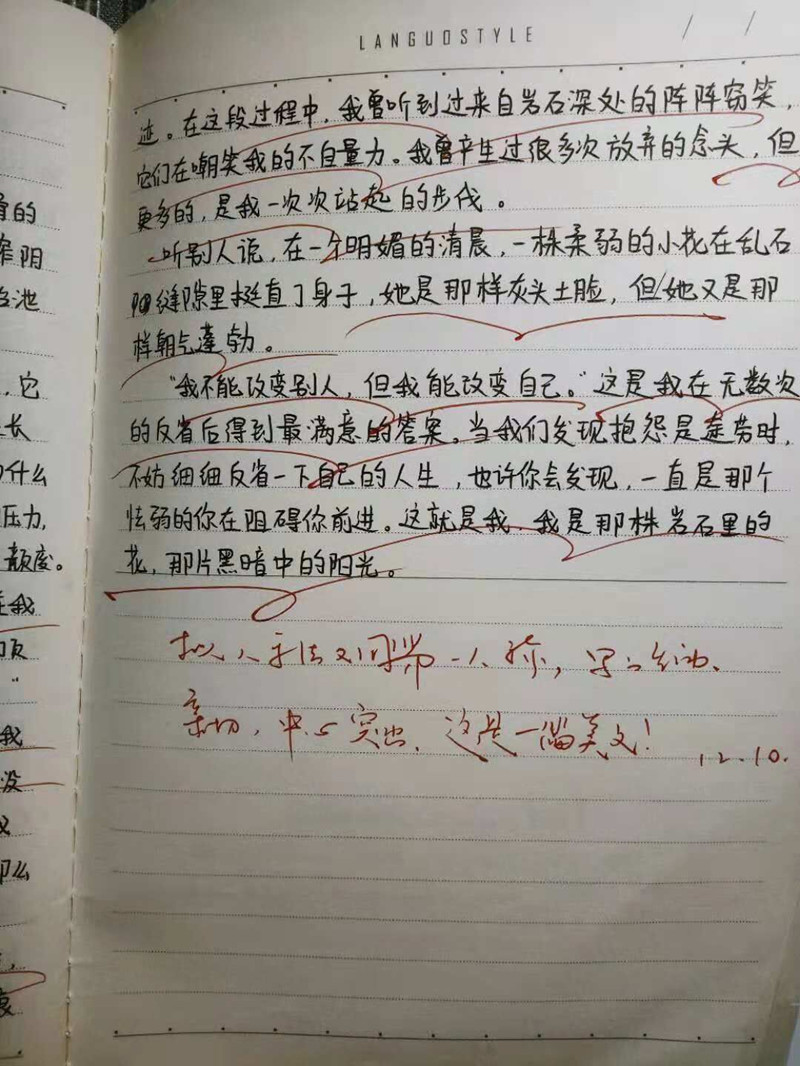 LANGUOSTYLE
/ /
迹。在这段过程中,我曾听到过来自岩石深处的阵阵窃笑,
它们在嘲笑我的不自量力。我曾产生过很多次放弃的念头,但
更多的,是我一次次站起的步伐。
听别人说,在一个明媚的清晨,一株柔弱的小花在乱石
缝隙里挺直了身子,她是那样灰头土脸,但她又是那
样朝气蓬勃。
"我不能改变别人,但我能改变自己。"这是我在无数次
的反省后得到最满意的答案。当我们发现抱怨是徒劳时,
不妨细细反省一下自己的人生,也许你会发现,一直是那个
怯弱的你在阻碍你前进。这就是我,我是那株岩石里的
花,那片黑暗中的阳光。
拟人手法 第一人称,写 生动、
亲切,中心突出,这是一篇美文!
12.10.
的
阴
池
,它
长
什么
压力,
我
反
"
我
没
那么